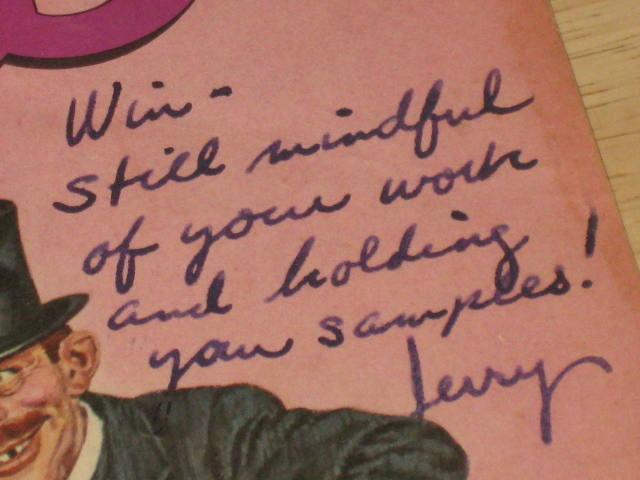 Win -
Still mindful
of your work
and holding
your samples!
Jerry